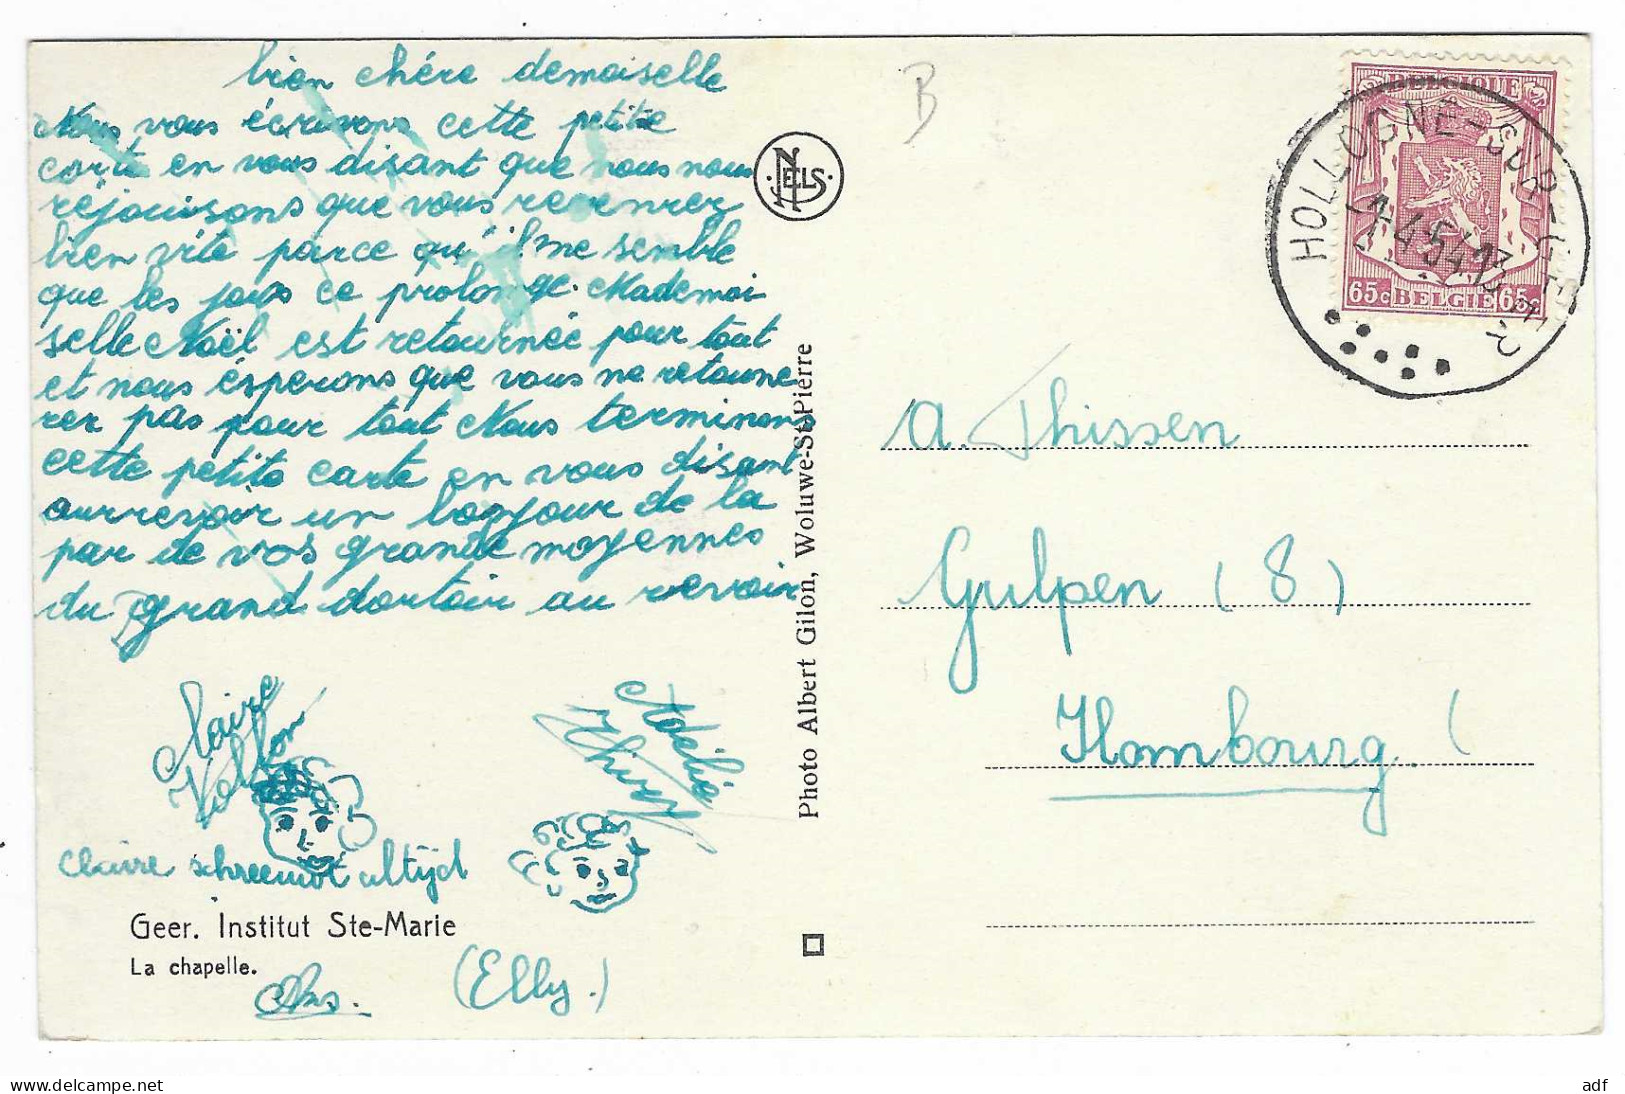 bien chére demoiselle
Nous vous écrivons cette petitie
carte en vous disant que nous nous
réjouissons que vous revenrez
bien vite parce qu'il me semble
que les jours ce prolonge. Mademoi
selle Noël est retournée pour tout
et nous ésperons que vous ne retourne
rer pas pour tout Nous terminons
cette petite carte en vous disant
aurrevoir un bonjour de la
par de vos grande moyennes
du grand dortoir au revoir
Claire
Adélie
claire schreeuwt altijd
Geer. Institut Ste-Marie
La chapelle.
Ans.
(Elly.)
NELS
Photo Albert Gilon, Woluwe-St-Pierre
B
BELGIQUE
65c BELGIE 65c
HOLLOGNE-SUR-GEER
1-4-54 13
A. Thissen
Gulpen (8)
Hombourg.
delcampe.net
adf